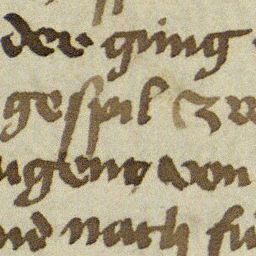 der ging
gespil Z
ugent von
nd nach fu